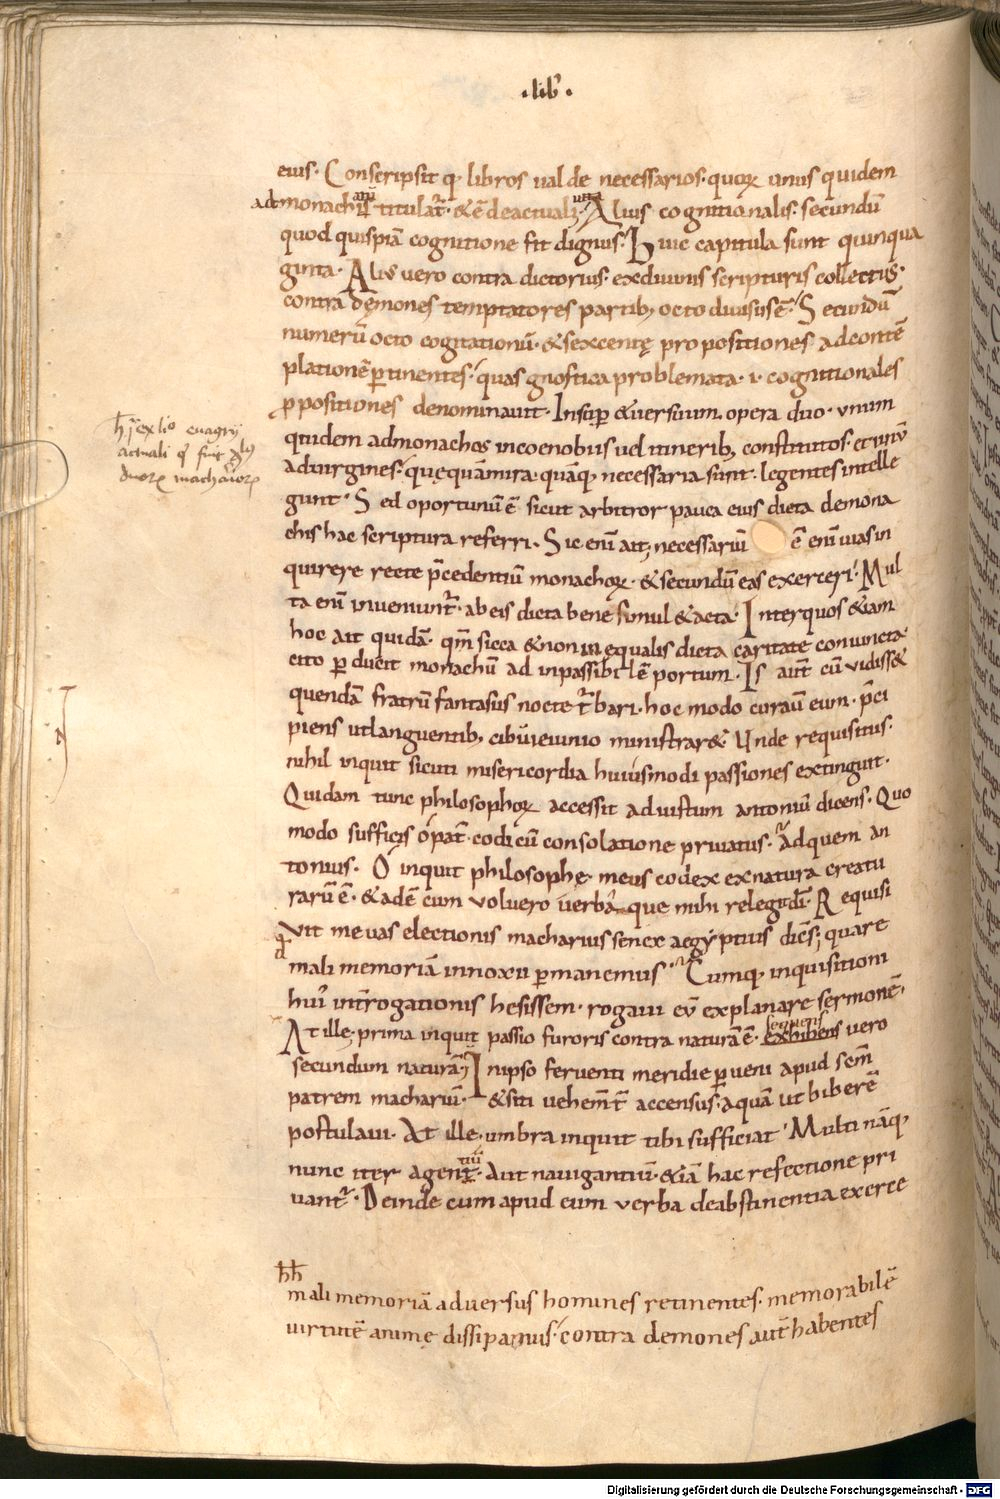 ·lib̃·
eius· Conscripsit q; libros ualde necessarios· quoꝝ unus quidem
ad monachis titulat̃· & ẽ de actuali· Alius cognitionalis· secundũ
quod quispiã cognitione fit dignus· Huic capitula sunt quinqua
ginta· Alius vero contra dictorius· ex diuinis scripturis collectus·
contra dęmones temptatores partib; octo diuisus ẽ· Secundũ
numerũ octo cogitationũ· & sexcentę propositiones ad contẽ
plationẽ ꝑtinentes· quas gnostica problemata· i· cognitionales
ꝓpositiones denominauit· Insuꝑ & uersuum opera duo· vnum
quidem ad monachos in coenobiis uel itinerib; constitutos· et
ad uirgines· quę quã mira· quãq; necessaria sunt· legentes intelle
gunt· Sed oportunũ ẽ sicut arbitror pauca eius dicta demona
chis hac scriptura referri· Sic enĩ ait; necessariũ ẽ enĩ uias in
quirere recte p̃cedentiũ monachoꝝ· & secundũ eas exerceri· Mul
ta enĩ inveniunt̃· ab eis dicta bene simul & acta· Inter quos &iam
hoc ait quidã· qm̃ sicca & non inequalis dicta caritate coniuncta·
cito ꝑducit monachũ ad inpassibilẽ portum· Is aut̃ cũ vidiss&
quendã fratrũ fantasiis nocte t̃bari· hoc modo curaũ eum· p̃ci
piens ut languentib; cibũ ieiunio ministrar&· Unde requisitus·
nihil inquit sicuti misericordia huiusmodi passiones extinguit·
Quidam tunc philosophoꝝ accessit ad iustum antoniũ dicens· Quo
modo sufficis o pat̃· codicũ consolatione priuatus· ad quem an
tonius· O inquit philosophę· meus codex ex natura creatu
rarũ ẽ· & adẽ cum voluero uerba que mihi relegit dĩ· Requisi
vit me vas electionis macharius senex aegyptius dicẽs; quare
mali memoriã innoxii ꝑmanemus· Cumq; inquisitioni
hui' int̃rogationis hesissem· rogaui eũ explanare sermonẽ·
At ille; prima inquit passio furoris contra naturã ẽ· sequens exhibens vero
secundum naturã; In ipso feruenti meridie ꝑueni apud sem̃
patrem machariũ· & siti uehem̃t̃ accensus· aquã ut biberẽ
postulaui· At ille; umbra inquit tibi sufficiat· Multi nãq;
nunc iter agent· tiũ Aut nauigantiũ· &iã hac refectione pri
uant̃· Deinde cum apud eum verba de abstinentia exerce
hh
mali memoriã aduersus homines retinentes· memorabilẽ
uirtutẽ animę dissipamus· contra demones aut̃ habentes
Digitalisierung gefördert durch die Deutsche Forschungsgemeinschaft - DFG